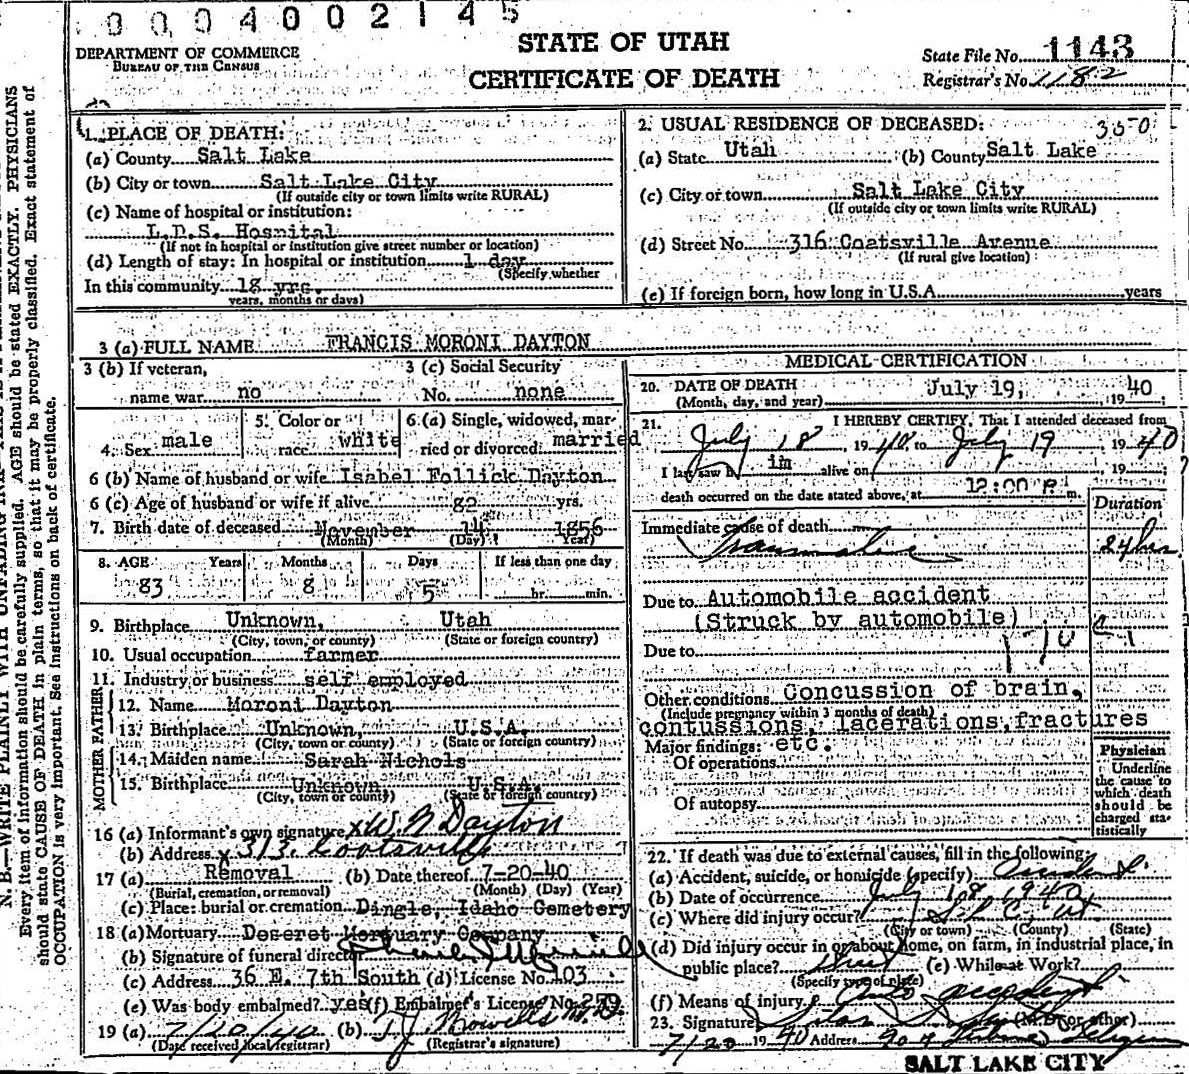 0004002145
DEPARTMENT OF COMMERCE
BUREAU OF THE CENSUS
STATE OF UTAH
CERTIFICATE OF DEATH
State File No. 1143
Registrar's No. 1182
N. B.—WRITE PLAINLY WITH UNFADING INK
Every item of information should be carefully supplied. AGE should be stated EXACTLY. PHYSICIANS
should state CAUSE OF DEATH in plain terms, so that it may be properly classified. Exact statement of
OCCUPATION is very important. See instructions on back of certificate.
1. PLACE OF DEATH:
(a) County Salt Lake
(b) City or town Salt Lake City
(If outside city or town limits write RURAL)
(c) Name of hospital or institution:
L.D.S. Hospital
(If not in hospital or institution give street number or location)
(d) Length of stay: In hospital or institution 1 day
(Specify whether
In this community 18 yrs.
years, months or days)
2. USUAL RESIDENCE OF DECEASED:
(a) State Utah (b) County Salt Lake
(c) City or town Salt Lake City
(If outside city or town limits write RURAL)
(d) Street No. 316 Coatsville Avenue
(If rural give location)
(e) If foreign born, how long in U.S.A. years
3 (a) FULL NAME FRANCIS MORONI DAYTON
3 (b) If veteran, name war no
3 (c) Social Security No. none
4. Sex male
5. Color or race white
6 (a) Single, widowed, married or divorced married
6 (b) Name of husband or wife Isabel Follick Dayton
6 (c) Age of husband or wife if alive 82 yrs.
7. Birth date of deceased November 14 1856
(Month) (Day) (Year)
8. AGE Years Months Days If less than one day
83 8 5 hr. min.
9. Birthplace Unknown, Utah
(City, town, or county) (State or foreign country)
10. Usual occupation farmer
11. Industry or business self employed
FATHER
12. Name Moroni Dayton
13. Birthplace Unknown, U.S.A.
(City, town or county) (State or foreign country)
MOTHER
14. Maiden name Sarah Nichols
15. Birthplace Unknown, U.S.A.
(City, town or county) (State or foreign country)
16 (a) Informant's own signature x W. N Dayton
(b) Address x 313 Coatsville
17 (a) Removal (b) Date thereof 7-20-40
(Burial, cremation, or removal) (Month) (Day) (Year)
(c) Place: burial or cremation Dingle, Idaho Cemetery
18 (a) Mortuary Deseret Mortuary Company
(b) Signature of funeral director
(c) Address 36 E. 7th South (d) License No. 103
(e) Was body embalmed? yes (f) Embalmer's License No. 259
19 (a) 7/20/40 (b) M.D.
(Date received local registrar) (Registrar's signature)
MEDICAL CERTIFICATION
20. DATE OF DEATH July 19, 1940
(Month, day, and year)
21. I HEREBY CERTIFY, That I attended deceased from
July 18, 1940 to July 19 1940
I last saw him alive on , 19
death occurred on the date stated above, at 12:00 P.m.
Duration
Immediate cause of death
Traumatic 24 hrs.
Due to Automobile accident
(Struck by automobile)
Due to
Other conditions Concussion of brain,
(Include pregnancy within 3 months of death)
contussions, lacerations, fractures
Major findings: etc.
Of operations
Of autopsy
Physician
Underline
the cause to
which death
should be
charged sta-
tistically
22. If death was due to external causes, fill in the following:
(a) Accident, suicide, or homicide (specify) Accident
(b) Date of occurrence July 18, 1940
(c) Where did injury occur? S. L. C., Ut.
(City or town) (County) (State)
(d) Did injury occur in or about home, on farm, in industrial place, in
public place? Street (e) While at Work?
(Specify type of place)
(f) Means of injury Auto accident
23. Signature (M.D. or other)
7/20 1940 Address
SALT LAKE CITY